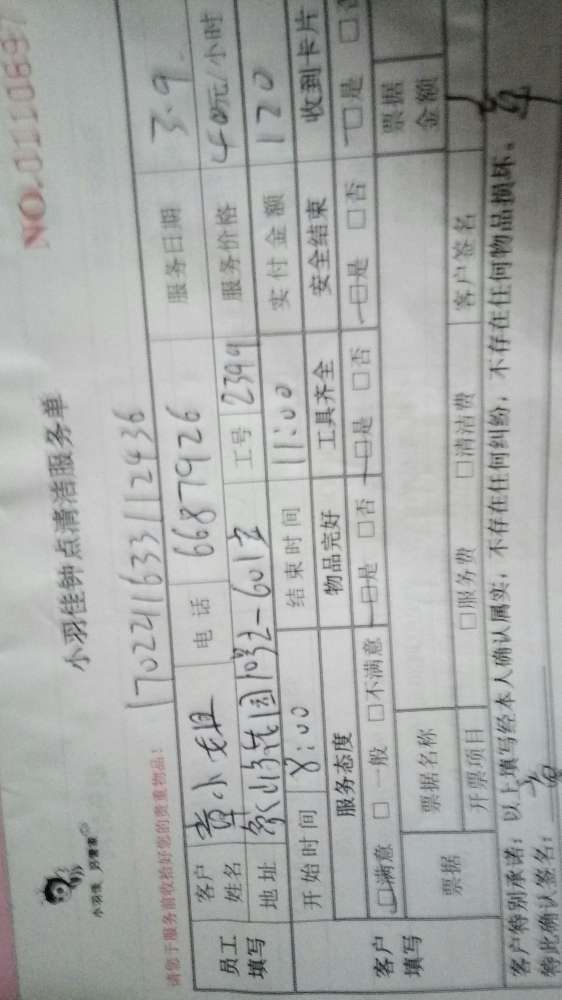 NO.0110697
小羽佳钟点清洁服务单
小羽佳
请您于服务前收拾好您的贵重物品!
170224163311 2436
员工填写 客户姓名 黄小姐 电话 6687926 服务日期 3.9
地址 10号-601 工号 2399 服务价格 40元/小时
开始时间 8:00 结束时间 11:00 实付金额 120
客户填写 服务态度 物品完好 工具齐全 安全结束 收到卡片
□满意 □一般 □不满意 □是 □否 □是 □否 □是 □否 □是 □否
票据 票据名称 票据金额
开票项目 □服务费 □清洁费 客户签名
客户特别承诺:以上填写经本人确认属实,不存在任何纠纷,不存在任何物品损坏。
特此确认签名: